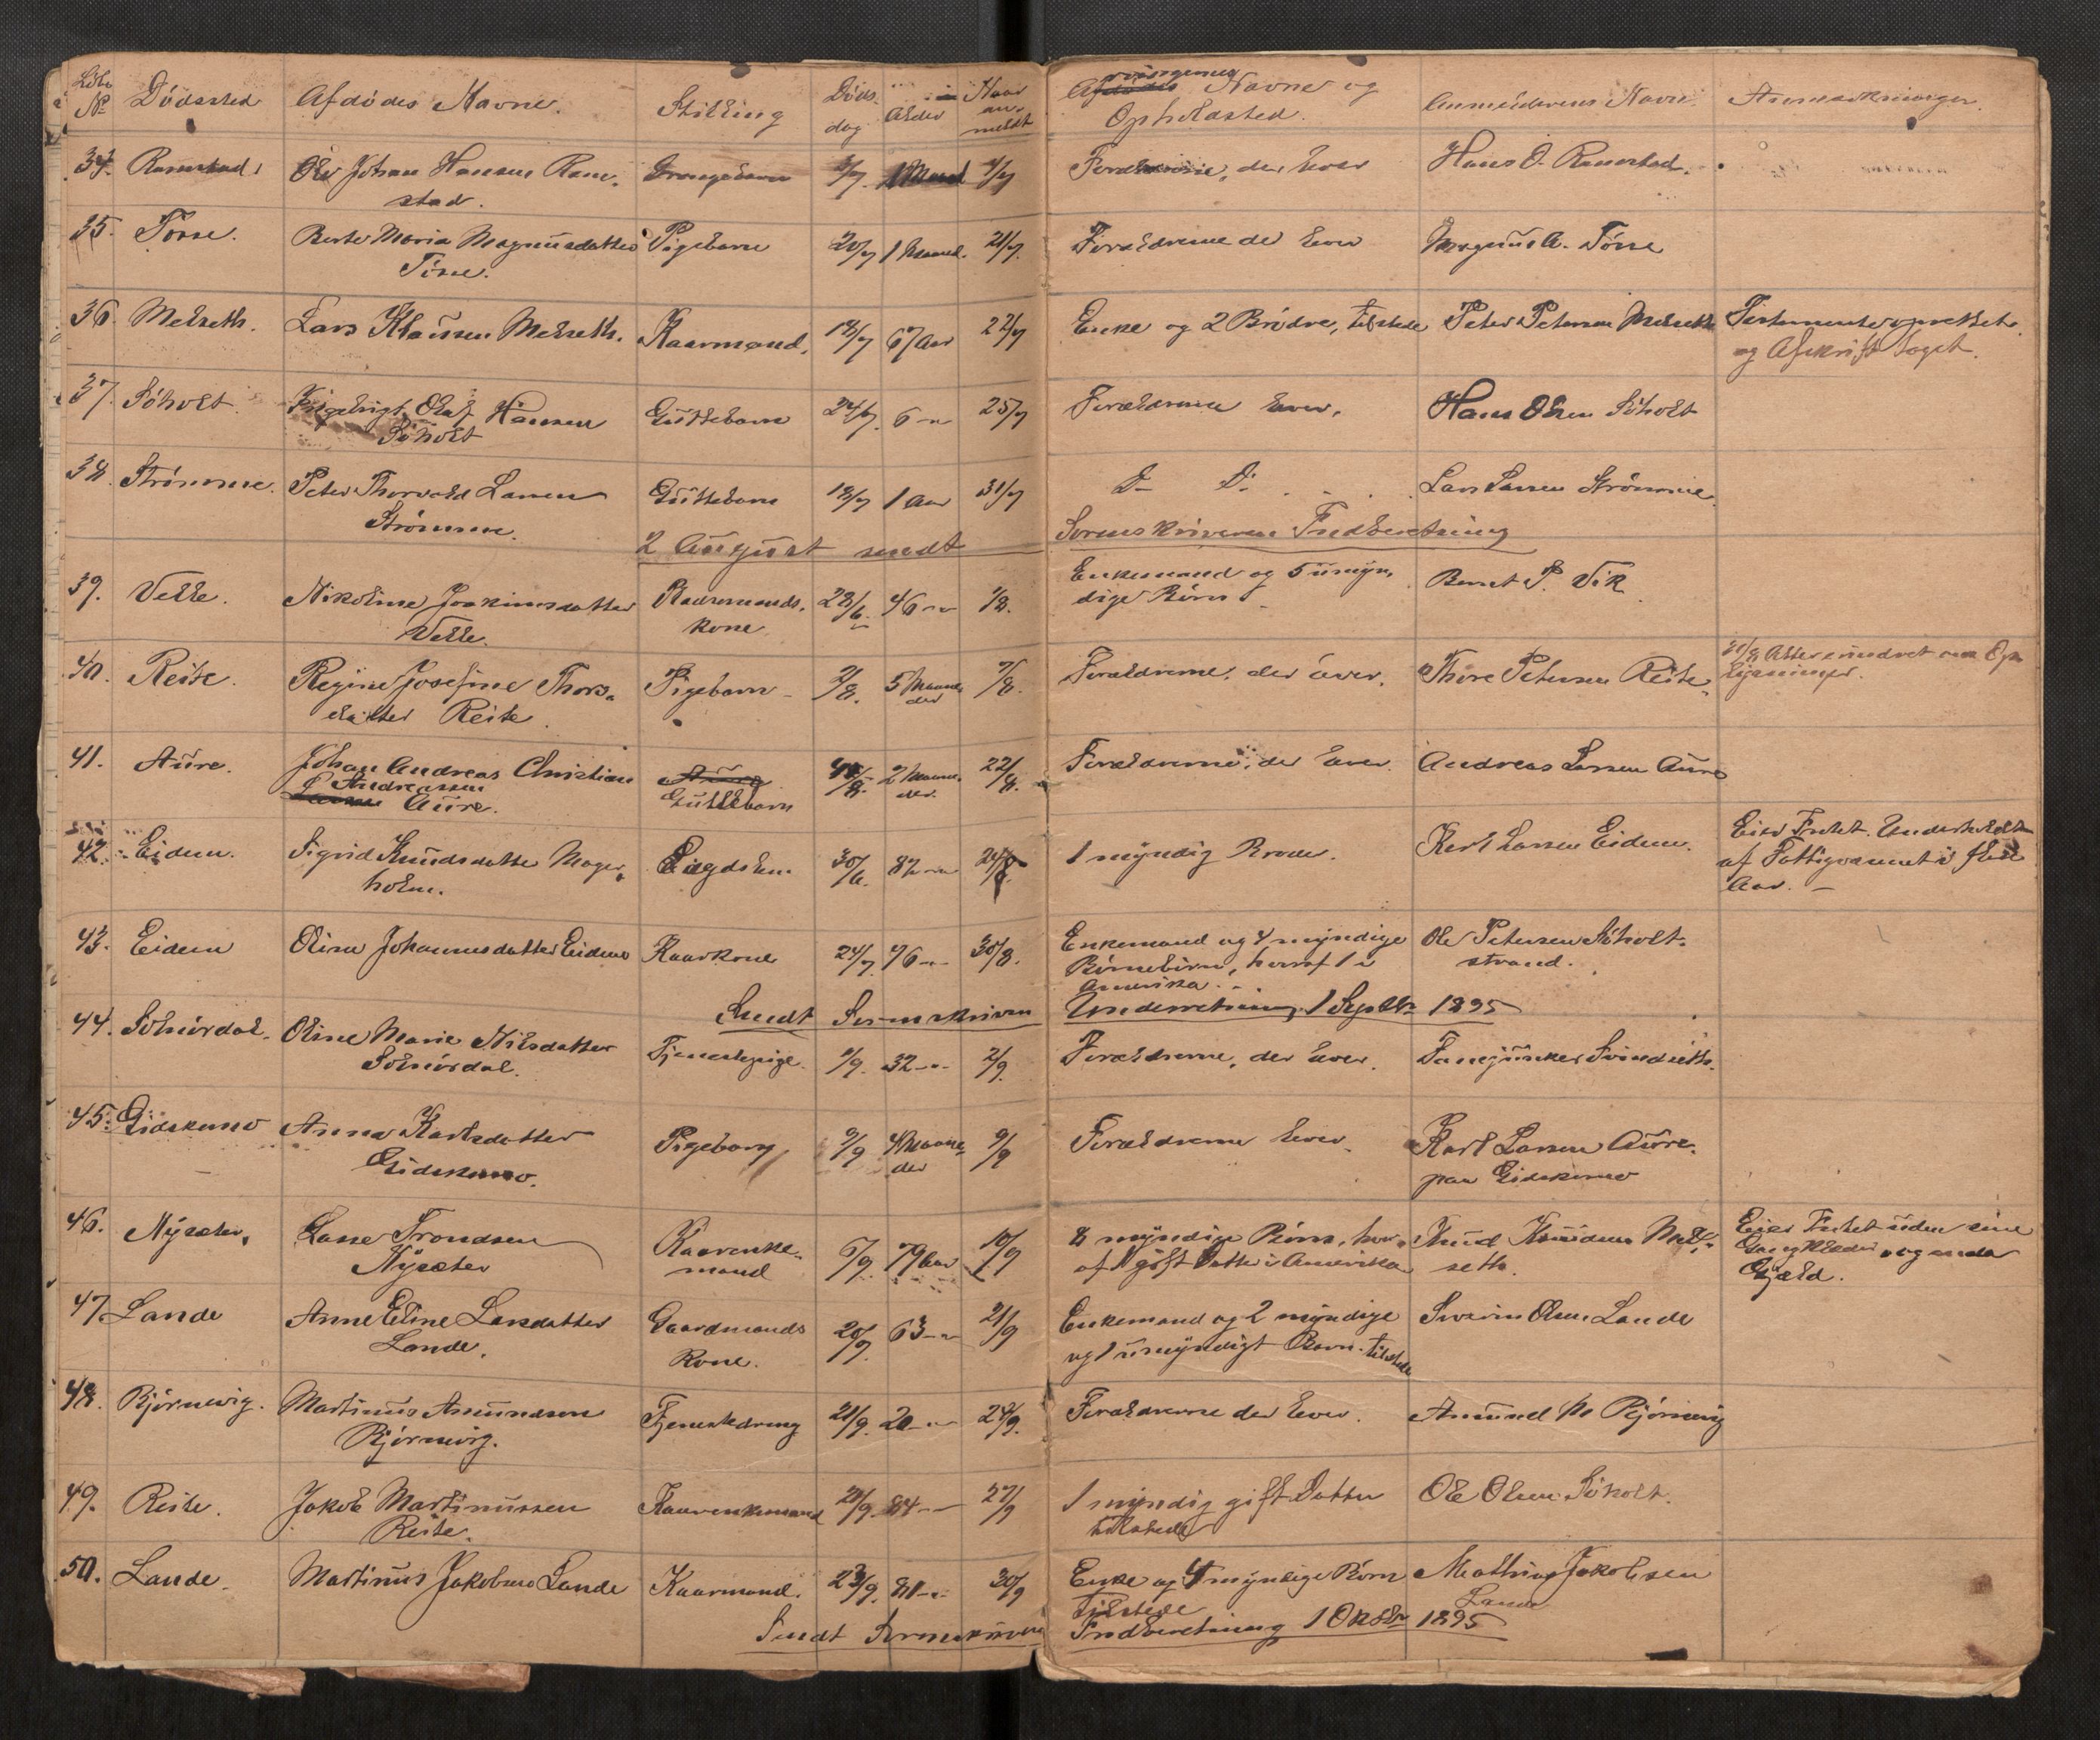 Löbe Dödssted Afdödes Navne. Stilling Döds- Alder Naar Arvingernes Navne og Anmelderens Navn. Anmærkninger.
No dag an- Opholdssted.
meldt
34. Ramstad Ole Johan Hansen Ram- Drengebarn 1 Maaned Forældrene, der lever Hans O. Ramstad.
stad.
35. Tösse. Berte Maria Magnusdatter Pigebarn 20/7 1 Maaned. 21/7. Forældrene der lever Magnus A. Tösse
Tösse.
36. Melseth. Lars Klausen Melseth. Kaarmand. 18/7 67 Aar 22/7 Enke og 2 Brödre, tilstede Peter Petersen Melseth Testamente oprettet
og Afskrift taget.
37. Söholt. Ingebrigt Olaf Hansen Guttebarn 24/7. 6 -"- 25/7 Forældrene lever. Hans Olsen Söholt
Söholt
38. Strömme. Peter Thorvald Larsen Guttebarn 18/7 1 Aar 31/7 Do Do Lars Larsen Strömme
Strömme.
2 August sendt Sorenskriveren Indberetning
39. Velle. Nikoline Joakimsdatter Kaarmands- 28/6. 46 -"- 1/8. Enkemand og 5 umyn- Bernt P. Vik
Velle. kone dige Börn
40. Reite. Regine Josefine Thors- Pigebarn 2/8. 5 Maane- 7/8. Forældrene, der lever. Thore Petersen Reite. Op-
datter Reite. der lysninger.
41. Aure. Johan Andreas Christian 2 Maane- 22/8. Forældrene, der lever. Andreas Larsen Aure
Andreassen Guttebarn der.
Aure.
42. Eidem. Sigrid Knudsdatter Mager- Lægdslem 30/6. 82 -"- 1 myndig Broder. Karl Larsen Eidem. Eier Intet. Underholdt
holm. af Fattigvæsenet i flere
Aar. –
43. Eidem Olina Johannesdatter Eidem Kaarkone 24/7. 76 -"- 30/8. Enkemand og 4 myndige Ole Petersen Söholt-
Börnebörn, hvoraf 1 i strand.
Amerika.
Sendt Sorenskriveren Underretning 1 Septbr 1895
44. Solnördal. Oline Marie Nilsdatter Tjenestepige. 1/9. 32 -"- 2/9. Forældrene, der lever. Fanejunker Svindseth.
Solnördal.
45. Eidskemo Anna Karlsdatter Pigebarn 2/9 4 Maane- 9/9 Forældrene lever. Karl Larsen Aure.
Eidskemo. der paa Eidskemo
46. Nysæter. Lasse Trondsen Kaarenke- 5/9. 79 Aar 10/9 8 myndige Börn, hvor- Knud Knudsen Mel- Eier Intet uden sine
Nysæter mand af 1 gift Datter i Amerika seth. Gangklæder og endda
Gjæld.
47. Lande Anne Eline Larsdatter Gaardmands 20/9. 63 -"- 21/9 Enkemand og 2 myndige Severin Olsen Lande
Lande. Kone. og 1 umyndigt Barn. tilstede
48. Björnevig. Martinus Amundsen Tjenestedreng 21/9. 20 -"- 24/9. Forældrene der lever. Amund Björnevig
Björnevig.
49. Reite. Jakob Martinussen Kaarenkemand 21/9. 84 -"- 27/9 1 myndig gift Datter Ole Olsen Söholt.
Reite. tilstede
50. Lande. Martinus Jakobsen Lande Kaarmand. 23/9. 81 -"- 30/9 Enke og 4 myndige Börn Mathias Jakobsen
tilstede Lande
Sendt Sorenskriveren Indberetning 1 Oktbr 1895